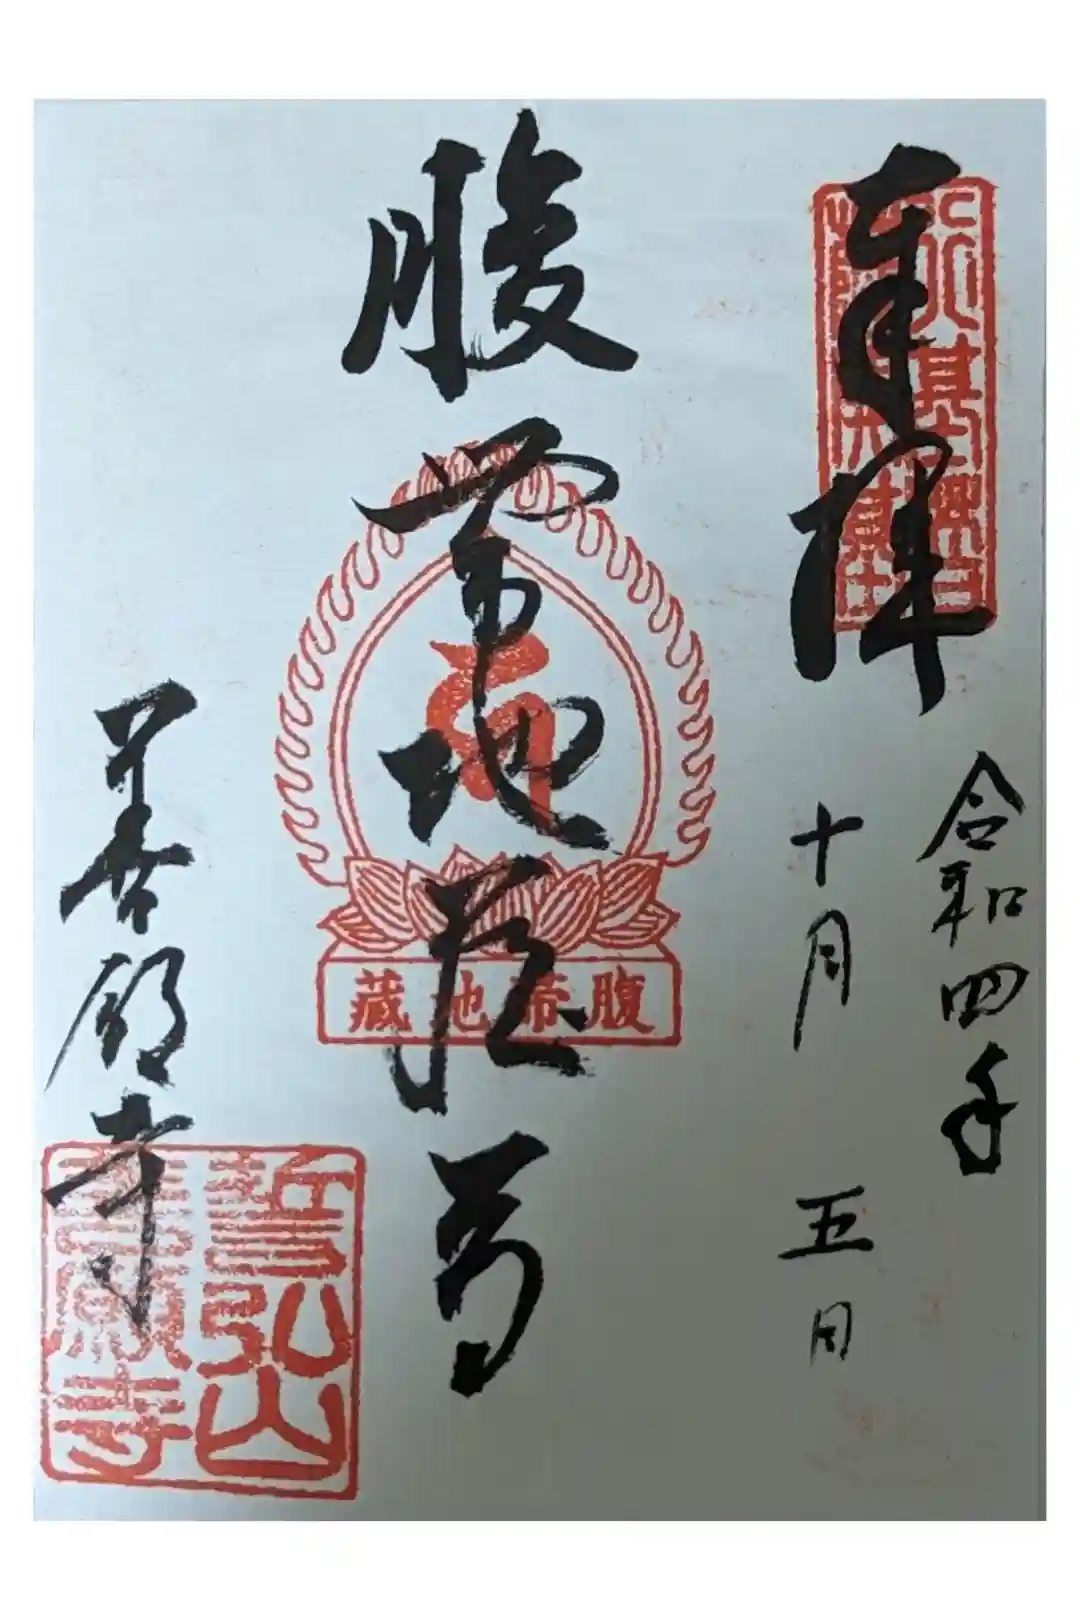 奉拝
令和四年
十月五日
腹帯地蔵尊
腹帯地蔵
善願寺
誓弘山
善願寺